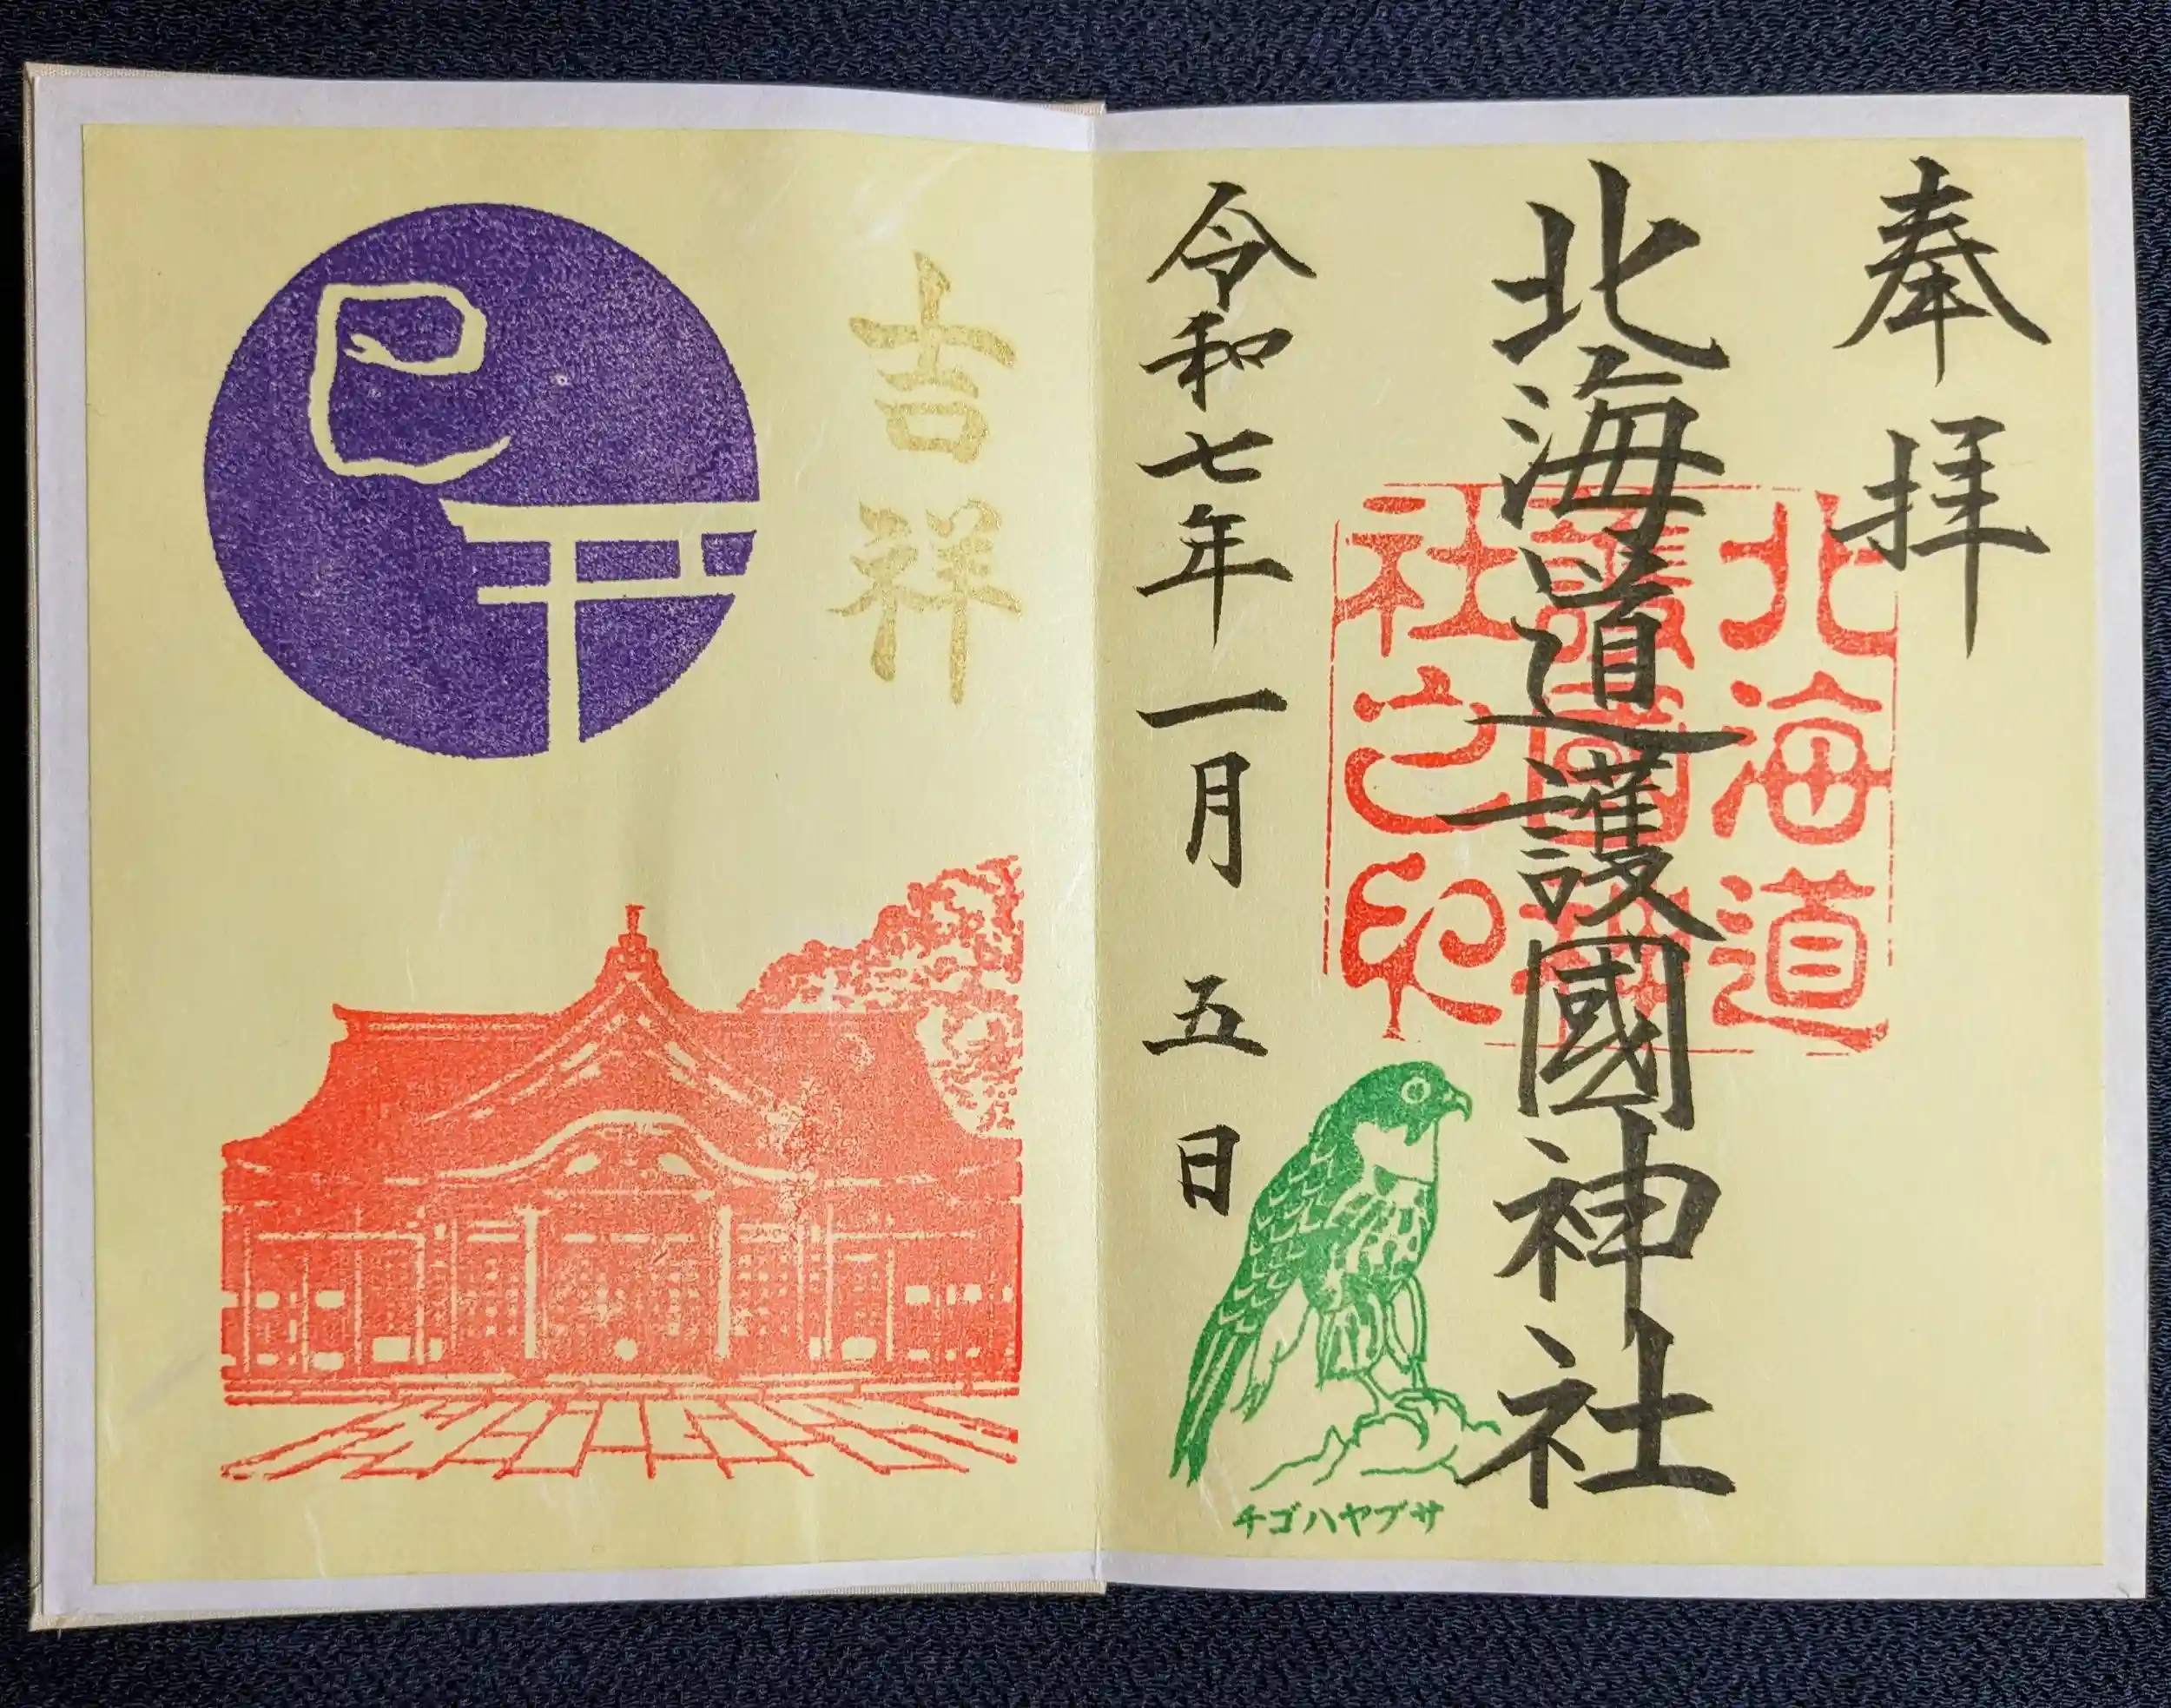 奉拝
北海道護國神社
北海道
護國神
社之印
令和七年一月五日
チゴハヤブサ
吉祥
巳